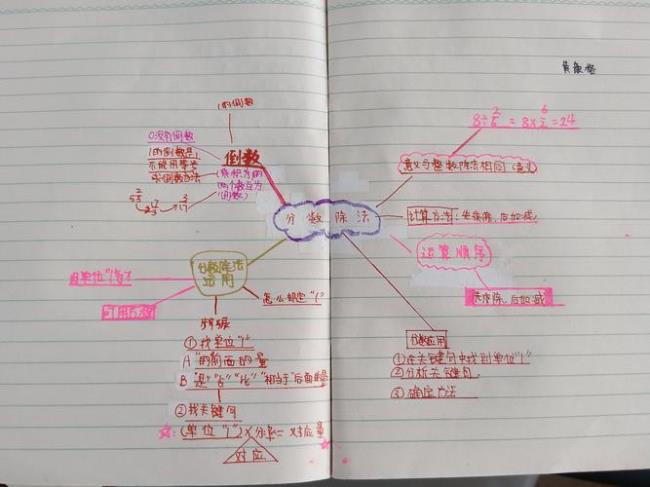 1的倒数
0没有倒数
1的倒数是1
求倒数方法
倒数
(乘积为1的
两个数互为
倒数)
分数除法
8÷2/6=8×6/2=24
意义与整数除法相同(意义)
计算方法:先乘除,后加减
运算顺序
先乘除,后加减
分数除法
运用
找单位"1"
怎么规定"1"
步骤
①找单位"1"
A "的"前面的量
B "是""占""比""相当于"后面的量
②找关键句
☆:(单位"1")×分率=对应量
对应
分数应用
①在关键句中找到单位"1"
②分析关键句
③确定方法